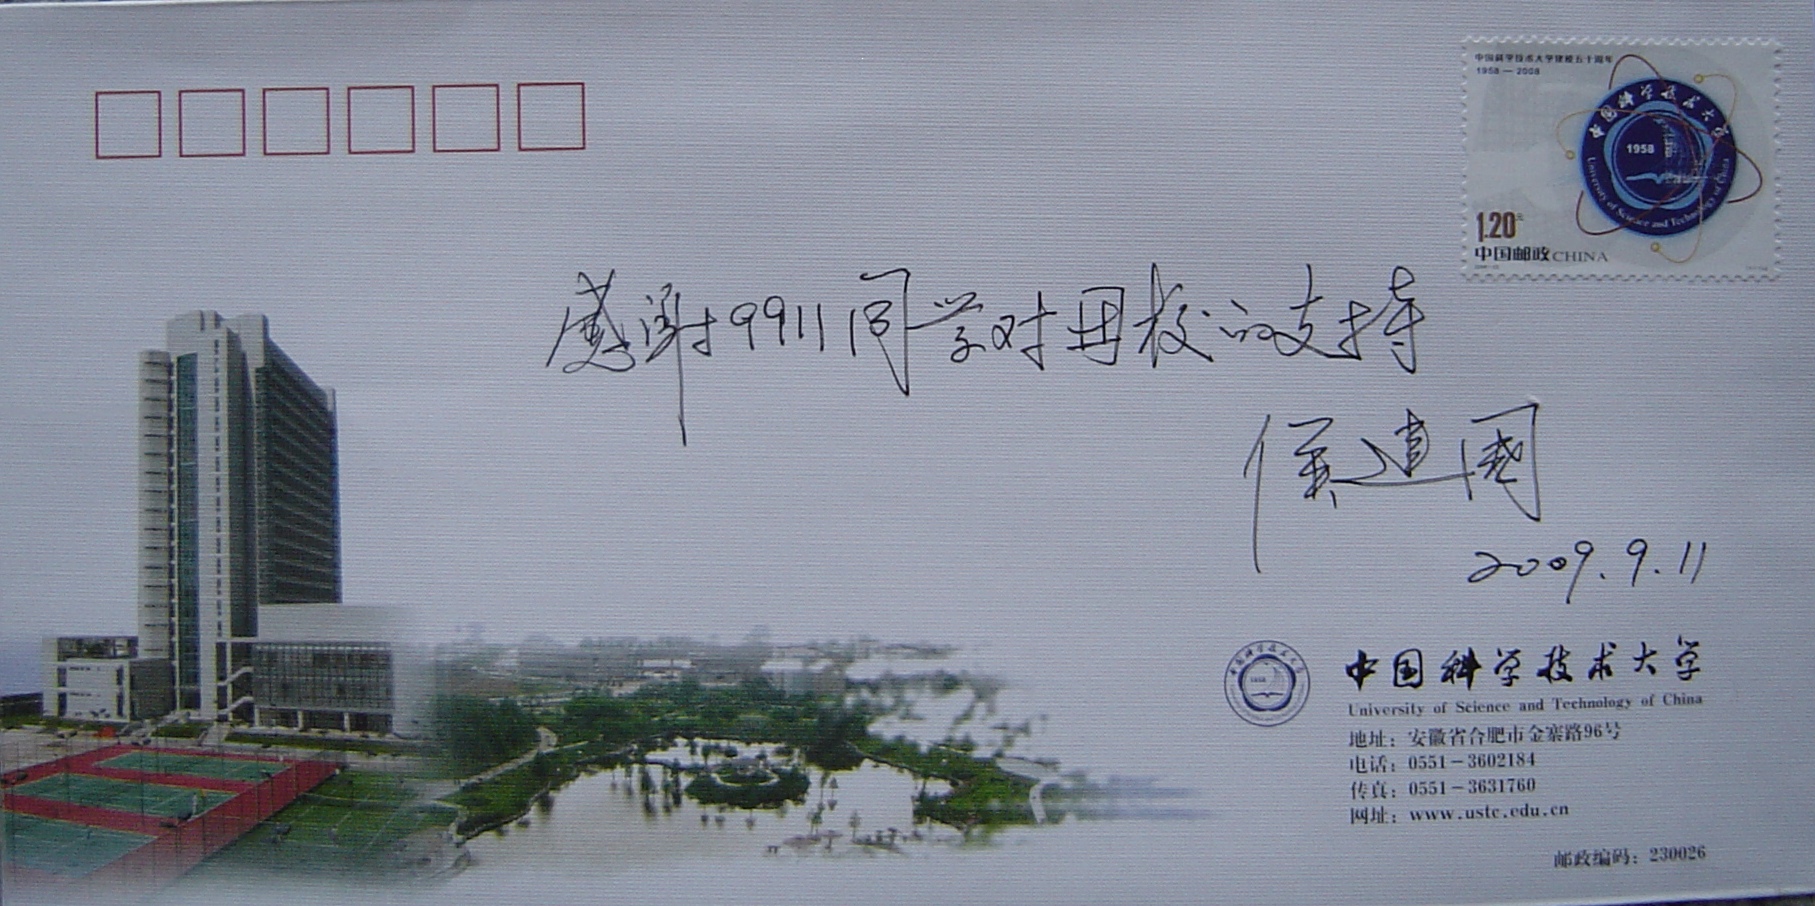 中国科学技术大学建校五十周年
1958—2008
中国科学技术大学
1958
University of Science and Technology of China
1.20元
中国邮政 CHINA
感谢9911同学对母校的支持
侯建国
2009.9.11
中国科学技术大学
1958
中国科学技术大学
University of Science and Technology of China
地址：安徽省合肥市金寨路96号
电话：0551－3602184
传真：0551－3631760
网址：www.ustc.edu.cn
邮政编码：230026